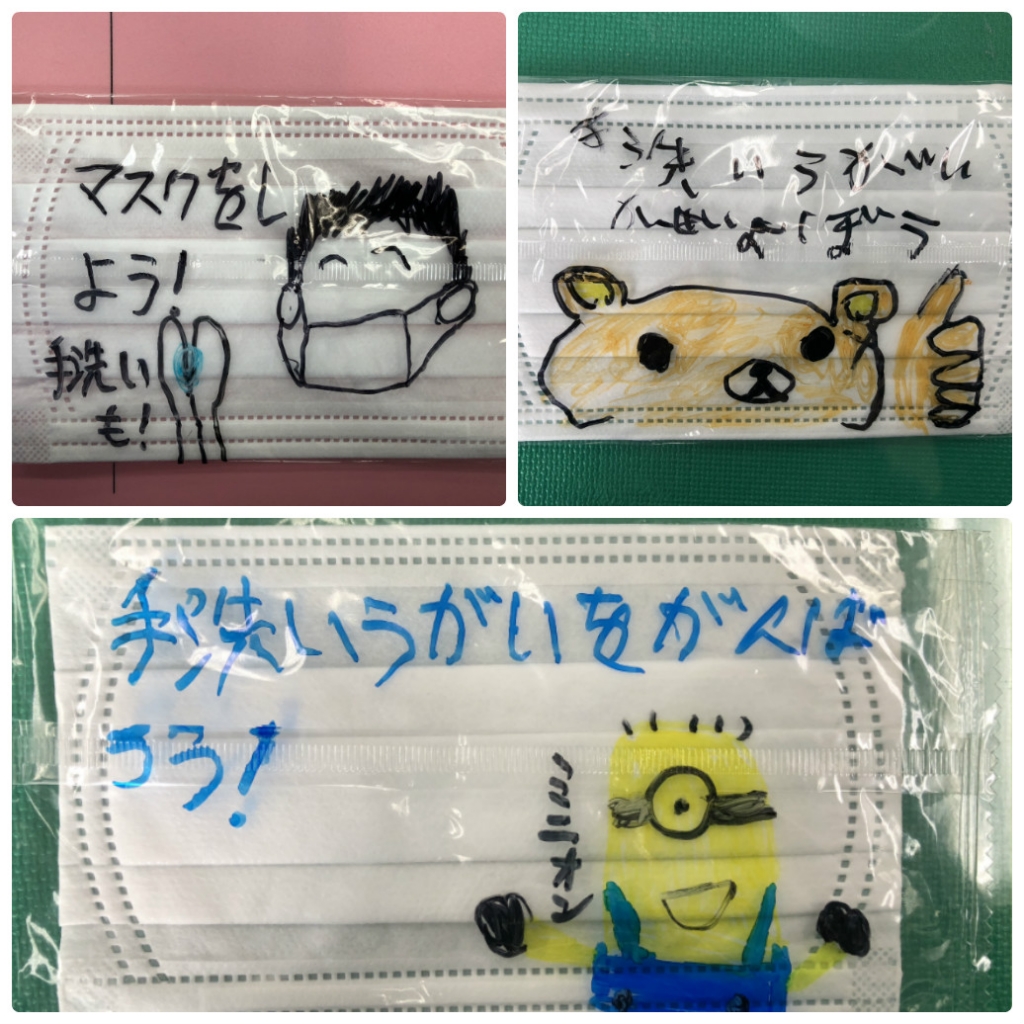 マスクをし
よう!
手洗い
も!
手洗いうがい
よぼう
手洗いうがいをがんば
ろう!
ミニオン